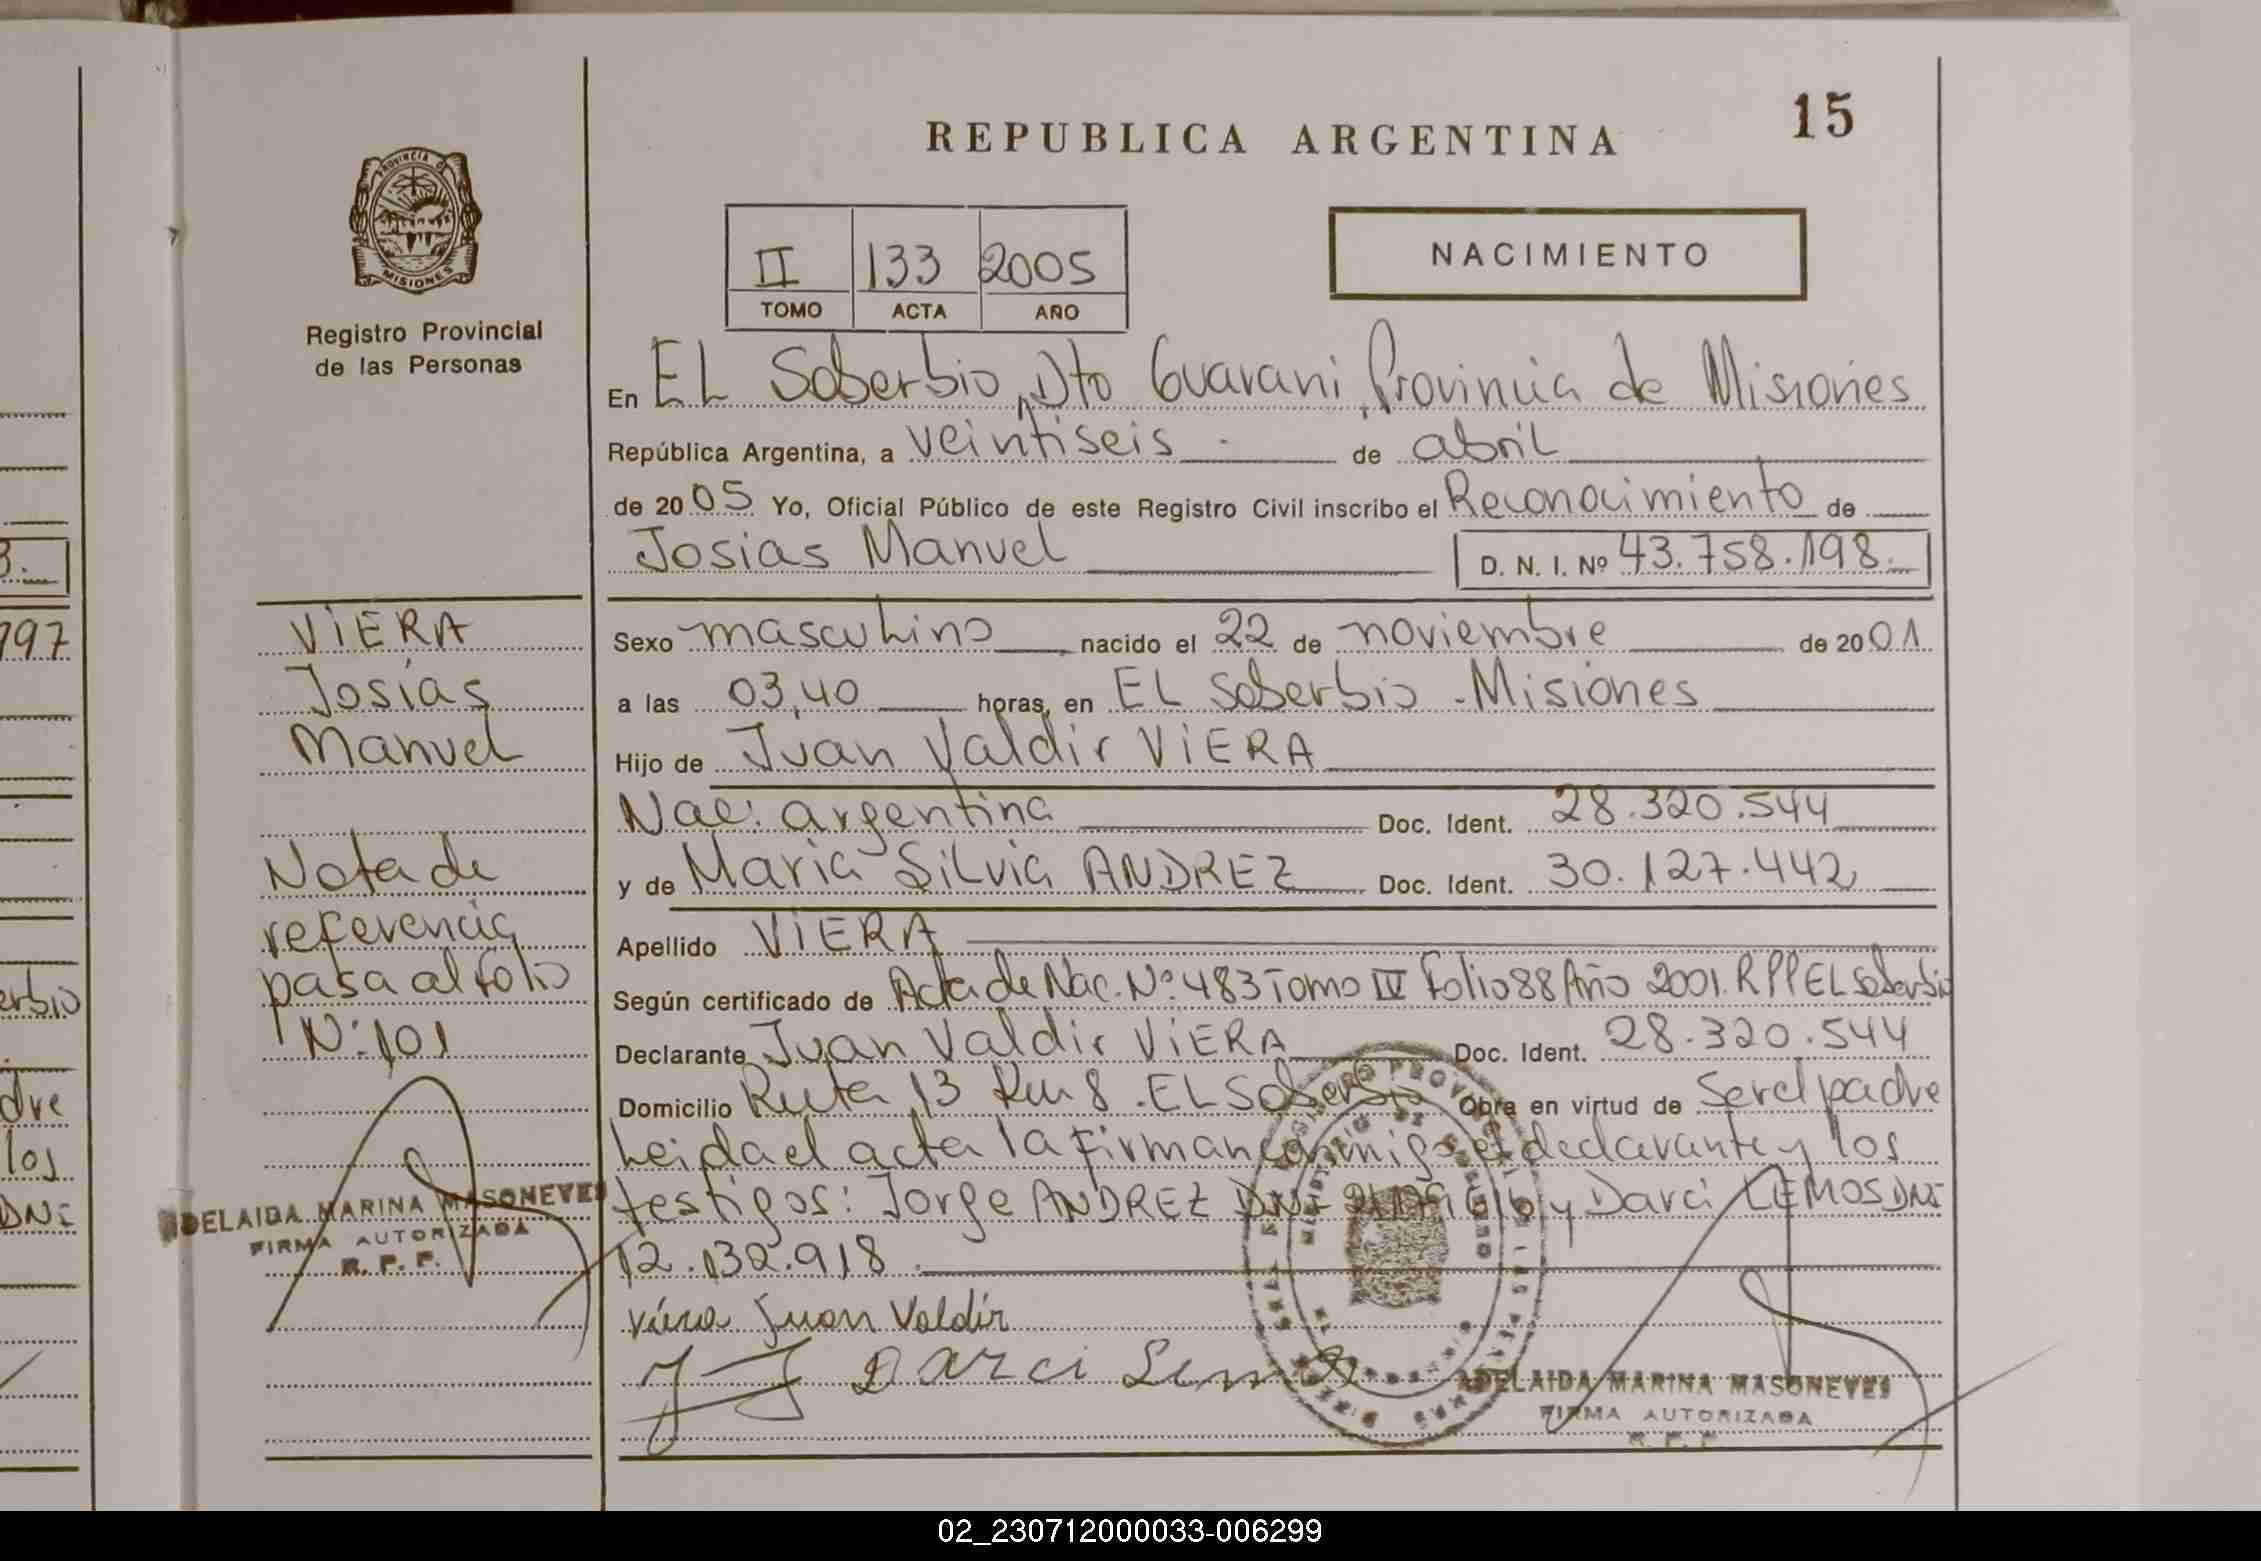 15
REPUBLICA ARGENTINA
PROVINCIA DE
MISIONES
Registro Provincial
de las Personas
II 133 2005
TOMO ACTA AÑO
NACIMIENTO
En EL Soberbio, Dto Guarani, Provincia de Misiones
República Argentina, a veintiseis de abril
de 2005 Yo, Oficial Público de este Registro Civil inscribo el Reconocimiento de
Josias Manuel D. N. I. Nº 43.758.198.
VIERA
Josías
Manuel
Nota de
referencia
pasa al folio
Nº 101
Sexo masculino nacido el 22 de noviembre de 2001
a las 03,40 horas, en EL Soberbio - Misiones
Hijo de Juan Valdir VIERA
Nac: argentina Doc. Ident. 28.320.544
y de Maria Silvia ANDREZ Doc. Ident. 30.127.442
Apellido VIERA
Según certificado de Acta de Nac. Nº 483 Tomo IV Folio 88 Año 2001. RPP EL Soberbio
Declarante Juan Valdir VIERA Doc. Ident. 28.320.544
Domicilio Ruta 13 Km 8. EL Soberbio Obra en virtud de Ser el padre
Leida el acta la firman conmigo el declarante y los
testigos: Jorge ANDREZ DNI y Darci LEMOS DNI
12.132.918
Viera Juan Valdir
Darci Lemos
ADELAIDA MARINA MASONEVES
FIRMA AUTORIZADA
R. P. P.
ADELAIDA MARINA MASONEVES
FIRMA AUTORIZADA
R. P. P.
3.
197
erbio
dre
los
DNI
02_230712000033-006299